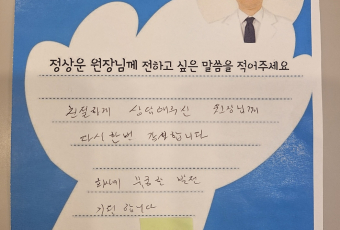 정상운 원장님께 전하고 싶은 말씀을 적어주세요
친절하게 상담해주신 원장님께
다시한번 감사합니다
하시게 무궁한 발전
기원 합니다